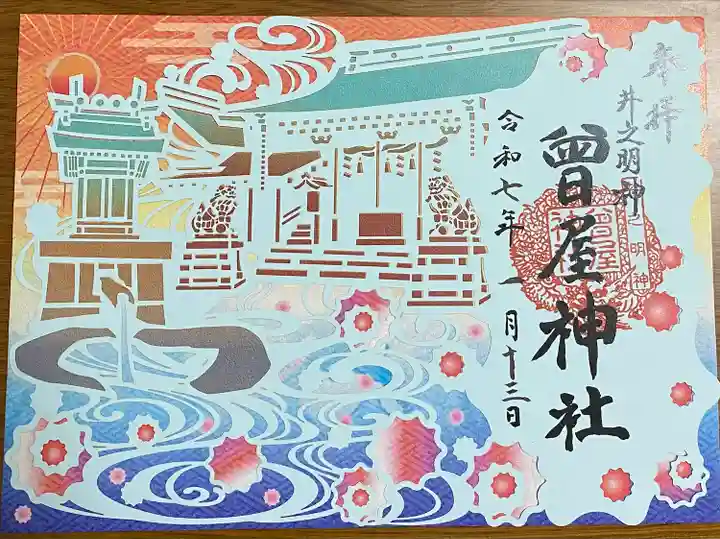 奉拝
井之明神
曽屋神社
令和七年一月十三日